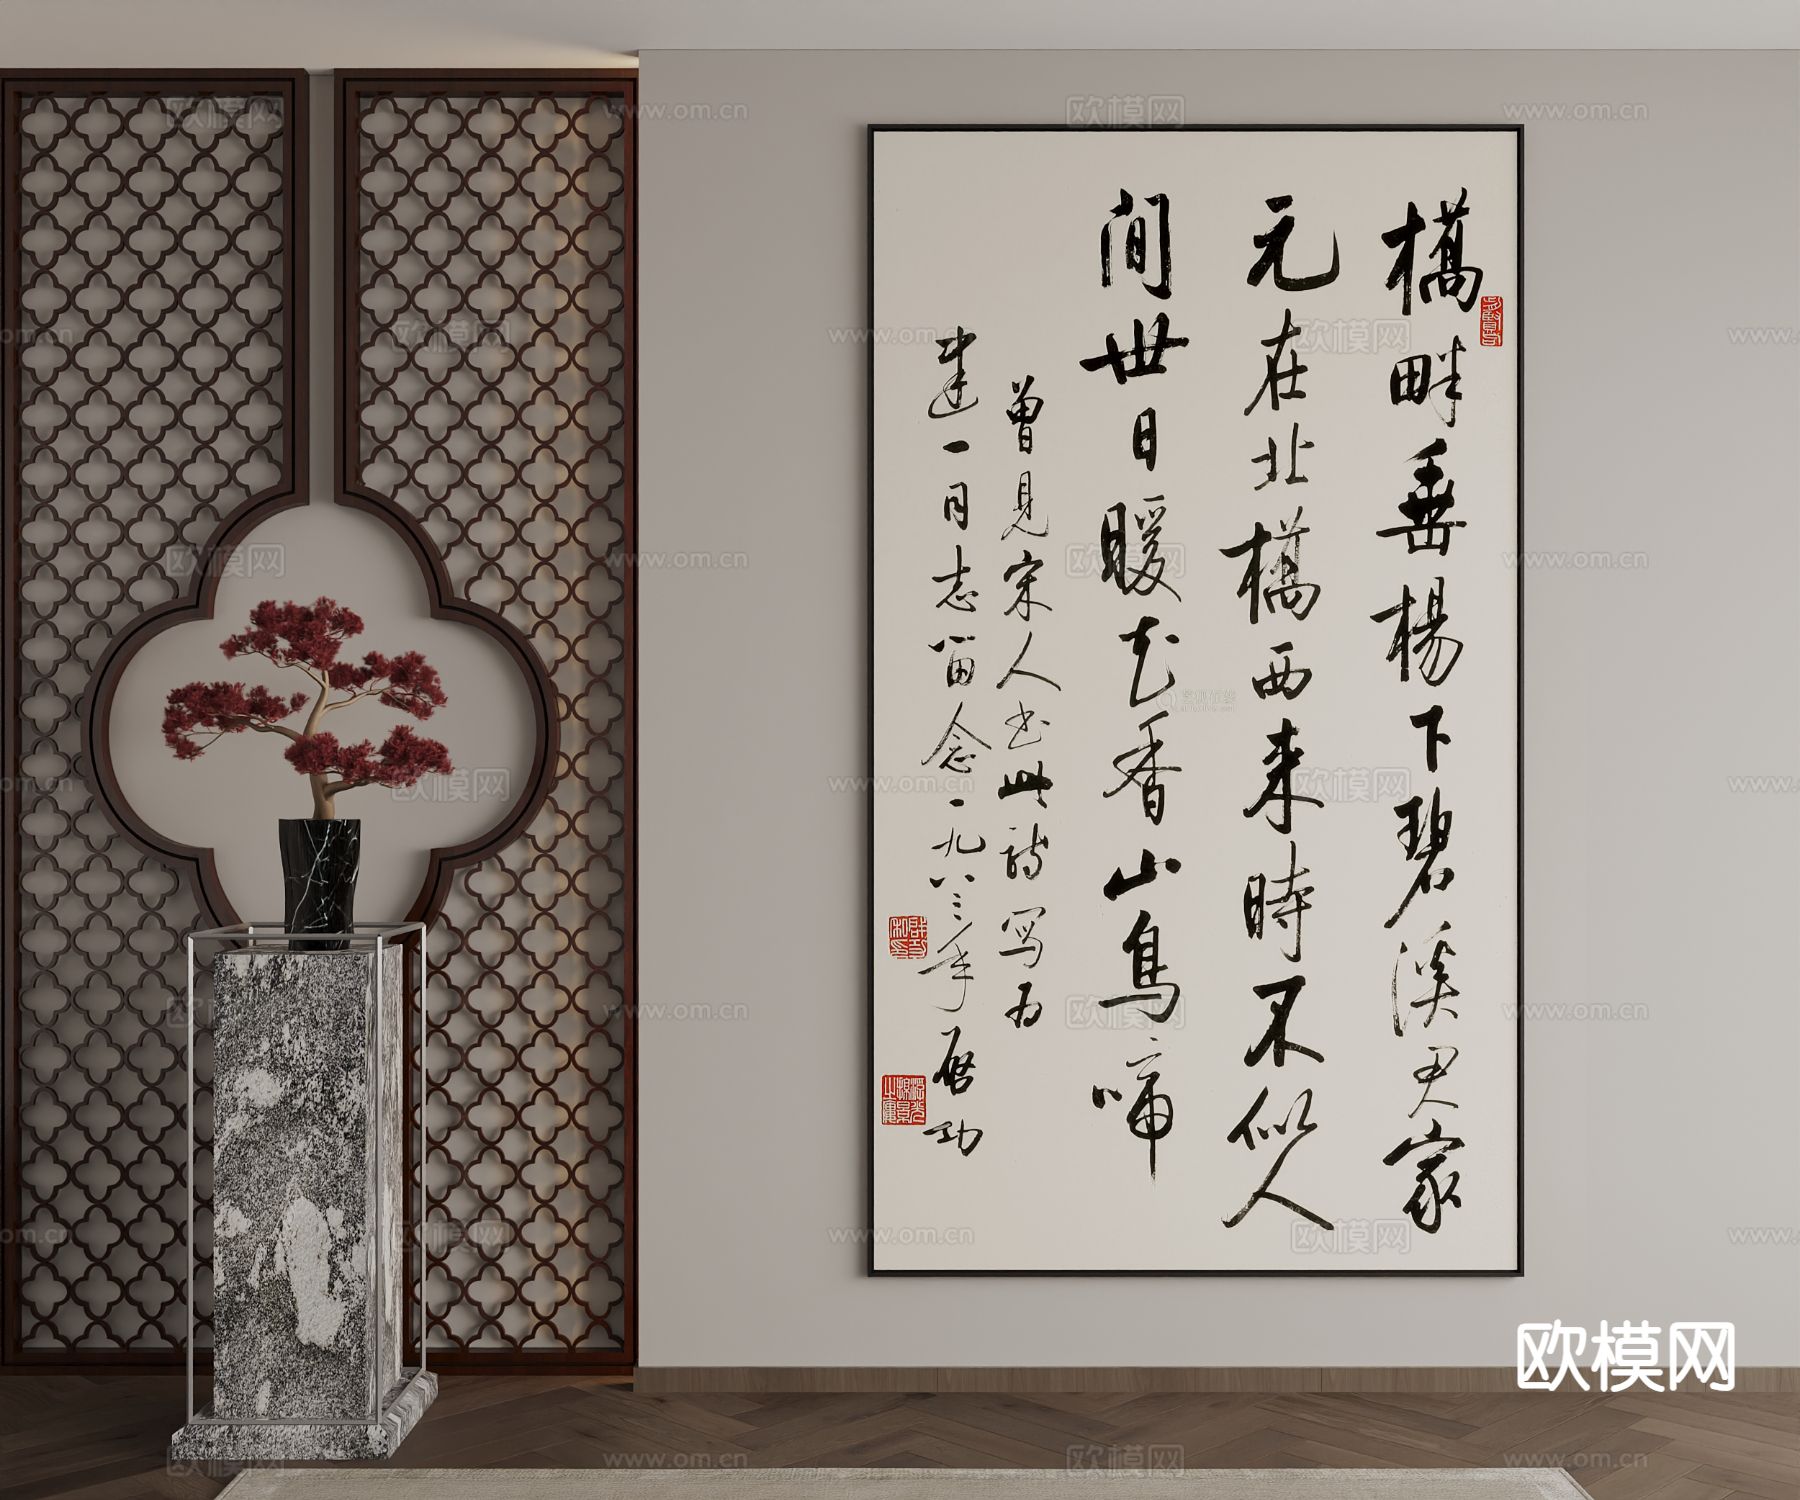 橋畔垂楊下碧溪君家
元在北橋西来時不似人
間世日暖花香山鳥啼
曾見宋人書此詩寫為
建一同志留念一九八三年啓功
欧模网
www.om.cn